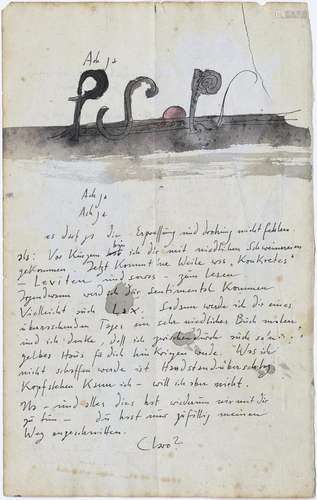 Ach ja
PS. PS
Ach ja
Ach ja
es darf ja die Erpressung und Drohung nicht fehlen.
als: Vor Kurzem bin ich dir mit niedlichen Schweinereien
gekommen. Jetzt kommt 'ne Weile was „Konkretes"
– Leviten und sowas – zum Lesen
Irgendwann werd ich dir sentimental kommen
Vielleicht auch
Sodann werde ich dir eines
überraschenden Tages ein sehr niedliches Buch
und ich denke, daß ich zwischendurch auch so'n
gelbes Haus für dich hinkriegen werde. Was ich
nicht schaffen werde ist Handstandüberschlag
Kopfstehen kenn ich – will ich aber nicht.
– und alles dies hat wiederum nur mit dir
zu tun – du hast nur zufällig meinen
Weg angeschnitten.
Claro?